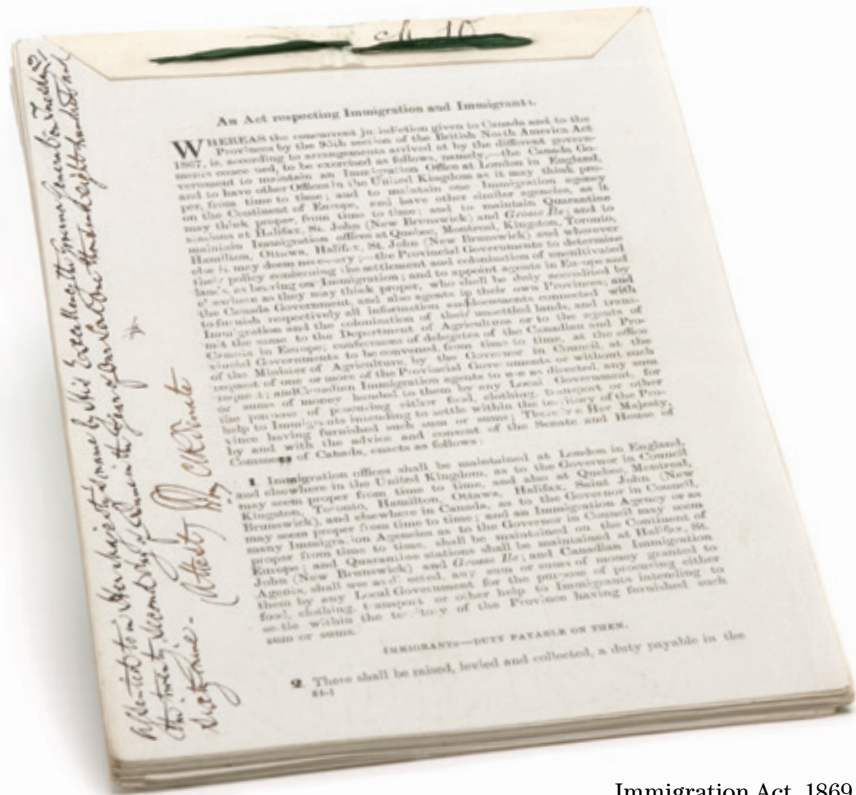 An Act respecting Immigration and Immigrants.
WHEREAS the concurrent jurisdiction given to Canada and to the
Provinces by the 95th section of the British North America Act
1867, is, according to arrangements arrived at by the different govern-
ments concerned, to be exercised as follows, namely,—the Canada Go-
vernment to maintain an Immigration Office at London in England,
and to have other Offices in the United Kingdom as it may think pro-
per, from time to time; and to maintain one Immigration agency
on the Continent of Europe, and have other similar agencies, as it
may think proper, from time to time; and to maintain Quarantine
stations at Halifax, St. John (New Brunswick) and Grosse Ile; and to
maintain Immigration offices at Quebec, Montreal, Kingston, Toronto,
Hamilton, Ottawa, Halifax, St. John (New Brunswick) and wherever
else it may deem necessary;—the Provincial Governments to determine
their policy concerning the settlement and colonization of uncultivated
lands, as bearing on Immigration; and to appoint agents in Europe and
elsewhere as they may think proper, who shall be duly accredited by
the Canada Government, and also agents in their own Provinces; and
to furnish respectively all information and documents connected with
Immigration and the colonization of their unsettled lands, and trans-
mit the same to the Department of Agriculture or to the agents of
Canada in Europe; conferences of delegates of the Canadian and Pro-
vincial Governments to be convened, from time to time, at the office
of the Minister of Agriculture, by the Governor in Council, at the
request of one or more of the Provincial Governments or without such
request; and Canadian Immigration agents to use as directed, any sum
or sums of money handed to them by any Local Government, for
the purpose of procuring either food, clothing, transport or other
help to Immigrants intending to settle within the territory of the Pro-
vince having furnished such sum or sums; Therefore Her Majesty,
by and with the advice and consent of the Senate and House of
Commons of Canada, enacts as follows:
1. Immigration offices shall be maintained at London in England,
and elsewhere in the United Kingdom, as to the Governor in Council
may seem proper from time to time, and also at Quebec, Montreal,
Kingston, Toronto, Hamilton, Ottawa, Halifax, Saint John (New
Brunswick), and elsewhere in Canada, as to the Governor in Council,
may seem proper from time to time; and an Immigration Agency or as
many Immigration Agencies as to the Governor in Council may seem
proper from time to time, shall be maintained on the Continent of
Europe; and Quarantine stations shall be maintained at Halifax, St.
John (New Brunswick) and Grosse Ile; and Canadian Immigration
Agents, shall use as directed, any sum or sums of money granted to
them by any Local Government for the purpose of procuring either
food, clothing, transport or other help to Immigrants intending to
settle within the territory of the Province having furnished such
sum or sums.
IMMIGRANTS—DUTY PAYABLE ON THEM.
2. There shall be raised, levied and collected, a duty payable in the
64-1
Assented to in Her Majesty's name by His Excellency the Governor General on Tuesday
the twenty second day of June in the year of Our Lord One thousand eight hundred and
sixty nine.
Immigration Act, 1869